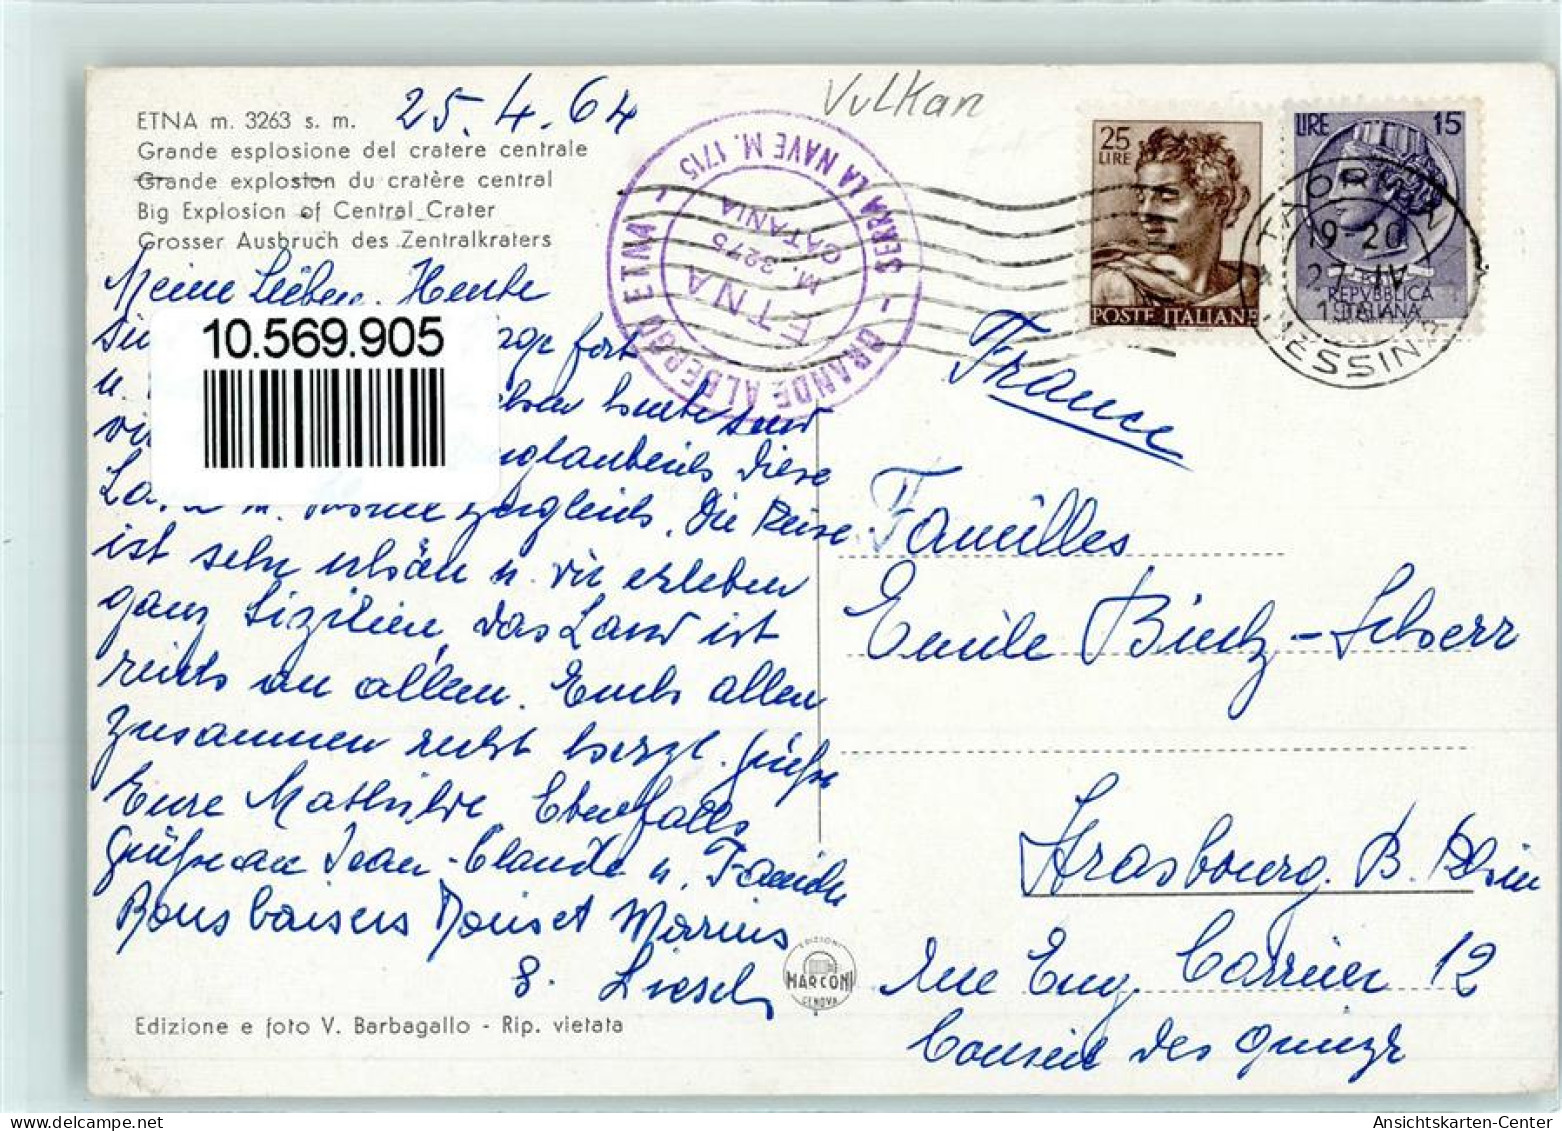 ETNA m. 3263 s. m.
25.4.64
Grande esplosione del cratere centrale
Grande explosion du cratère central
Big Explosion of Central Crater
Grosser Ausbruch des Zentralkraters
Vulkan
GRANDE ALBERGO ETNA - SERRA LA NAVE M. 1715 -
ETNA
M. 3275
CATANIA
25
LIRE
POSTE ITALIANE
LIRE 15
REPVBBLICA
ITALIANA
TAORMINA
19-20
27 IV
MESSINA
10.569.905
Meine Lieben. Heute
fort
u.
heute sind
unglaublich diese
Die Reise
ist sehr schön u. wir erleben
ganz Sizilien, das Land ist
reich an allem. Euch allen
zusammen recht herzl. Grüße
Eure Mathilde Ebenfalls
Grüße an Jean-Claude u. Familie
Bons baisers Marius
S. Liesel
France
Familles
Emile Bintz-Scherr
Strasbourg. B. Rhin
rue Eug. Carrière 12
Conseil des Quinze
EDIZIONI
MARCONI
GENOVA
Edizione e foto V. Barbagallo - Rip. vietata
Ansichtskarten-Center